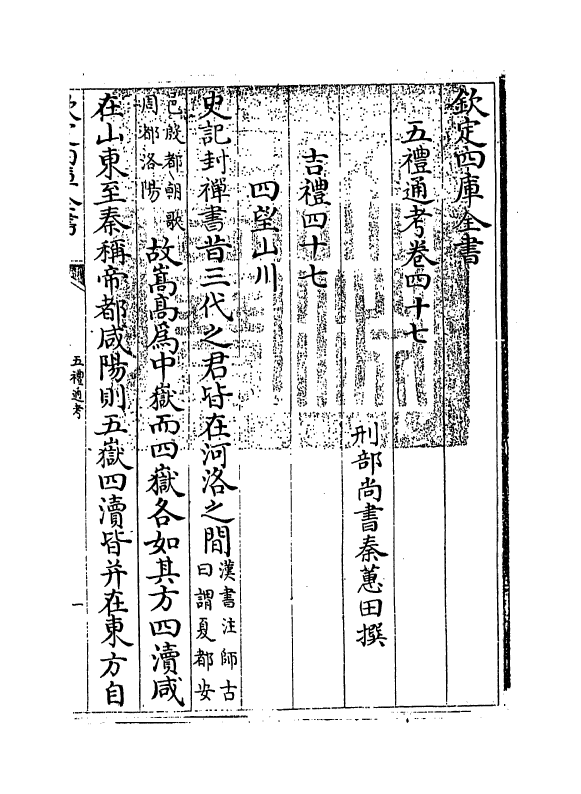 欽定四庫全書
五禮通考卷四十七
刑部尚書秦蕙田撰
吉禮四十七
四望山川
史記封禪書昔三代之君皆在河洛之間漢書注師古曰謂夏都安
邑殷都朝歌周都洛陽故嵩髙爲中嶽而四嶽各如其方四瀆咸
在山東至秦稱帝都咸陽則五嶽四瀆皆并在東方自
欽定四庫全書
五禮通考
一